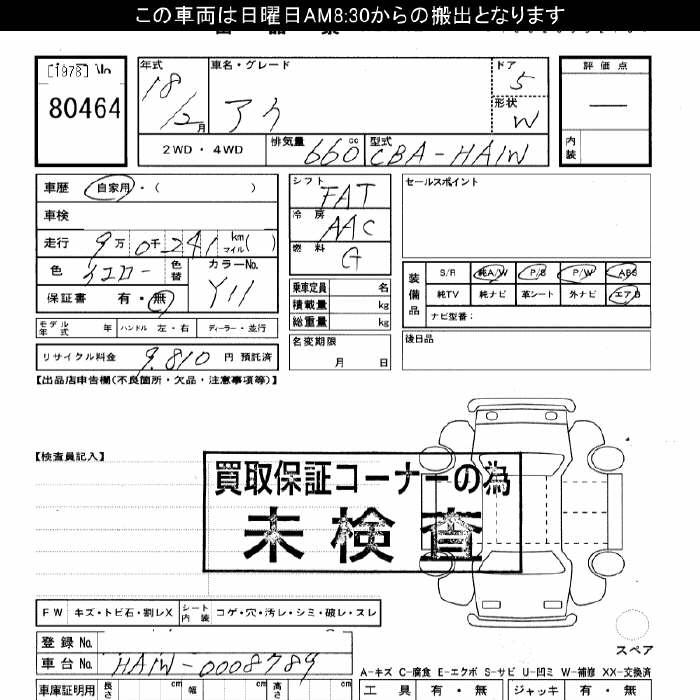 この車両は日曜日AM8:30からの搬出となります
[1978] No
80464
年式 18/12月
車名・グレード アイ
ドア 5
形状 W
2WD・4WD
排気量 660cc
型式 CBA-HA1W
評価点 —
内装
車歴 自家用・( )
車検
走行 9万0千241km マイル( )
色 イエロー 色替 カラーNo. Y11
保証書 有・無
モデル年式 年 ハンドル 左・右 ディーラー・並行
リサイクル料金 9,810円 預託済
シフト FAT
冷房 AAC
燃料 G
乗車定員 名
積載量 kg
総重量 kg
名変期限 月 日
セールスポイント
装備品
S/R 純A/W P/S P/W ABS
純TV 純ナビ 革シート 外ナビ エアB
ナビ型番:
後日品
【出品店申告欄(不良箇所・欠品・注意事項等)】
【検査員記入】
買取保証コーナーの為
未検査
FW キズ・トビ石・割レX シート内装 コゲ・穴・汚レ・シミ・破レ・スレ
スペア
登録No.
車台No. HA1W-0008789
A-キズ C-腐食 E-エクボ S-サビ U-凹ミ W-補修 XX-交換済
車庫証明用 長さ cm 幅 cm 高さ cm
工具 有・無 ジャッキ 有・無